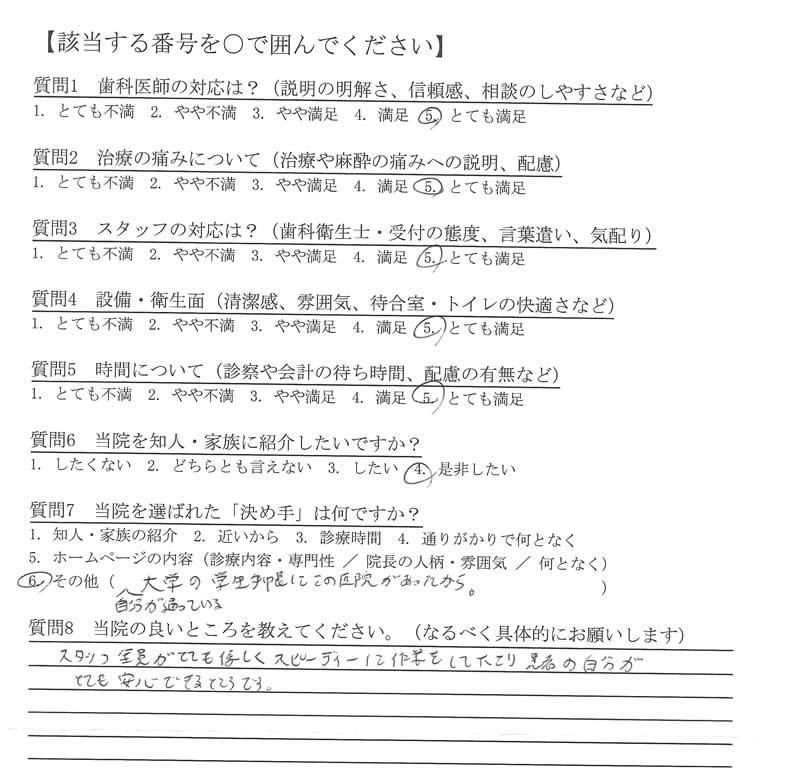 【該当する番号を○で囲んでください】
質問1 歯科医師の対応は？（説明の明解さ、信頼感、相談のしやすさなど）
1. とても不満 2. やや不満 3. やや満足 4. 満足 5. とても満足
質問2 治療の痛みについて（治療や麻酔の痛みへの説明、配慮）
1. とても不満 2. やや不満 3. やや満足 4. 満足 5. とても満足
質問3 スタッフの対応は？（歯科衛生士・受付の態度、言葉遣い、気配り）
1. とても不満 2. やや不満 3. やや満足 4. 満足 5. とても満足
質問4 設備・衛生面（清潔感、雰囲気、待合室・トイレの快適さなど）
1. とても不満 2. やや不満 3. やや満足 4. 満足 5. とても満足
質問5 時間について（診察や会計の待ち時間、配慮の有無など）
1. とても不満 2. やや不満 3. やや満足 4. 満足 5. とても満足
質問6 当院を知人・家族に紹介したいですか？
1. したくない 2. どちらとも言えない 3. したい 4. 是非したい
質問7 当院を選ばれた「決め手」は何ですか？
1. 知人・家族の紹介 2. 近いから 3. 診療時間 4. 通りがかりで何となく
5. ホームページの内容（診療内容・専門性 ／ 院長の人柄・雰囲気 ／ 何となく）
6. その他（ 大学の学生手帳にこの医院があったから。 ）
自分が通っている
質問8 当院の良いところを教えてください。（なるべく具体的にお願いします）
スタッフ全員がとても優しくスピーディーに作業をしており患者の自分が
とても安心できるところです。